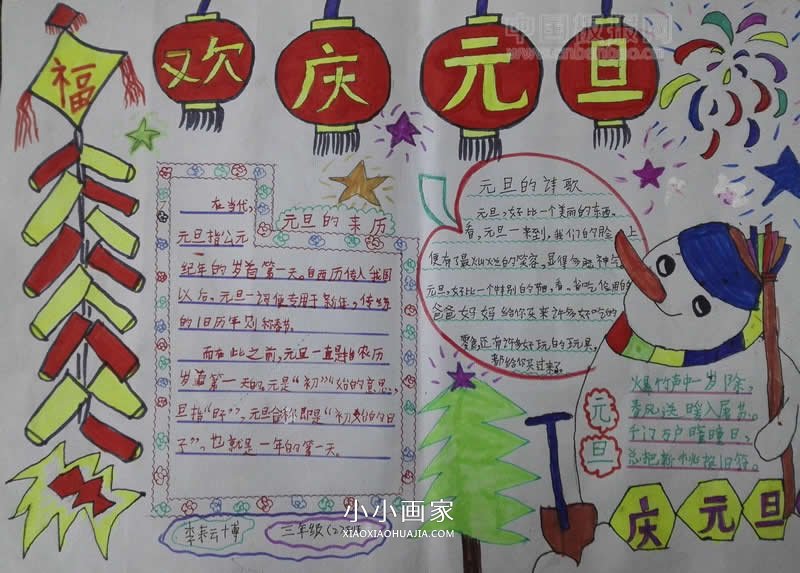 福
欢庆元旦
中国板报网
元旦的来历
在当代，
元旦指公元
纪年的岁首第一天。自西历传入我国
以后，元旦一词便专用于新年，传统
的旧历年则称春节。
而在此之前，元旦一直是农历
岁首第一天的。元是“初”“始的意思，
旦指“日子”，元旦合称即是“初始的日
子”，也就是一年的第一天。
三年级(2)班
元旦的诗歌
元旦，好比一个美丽的东西。
看，元旦一来到，我们的脸上
便有了最灿烂的笑容，显得多么神气。
元旦，好比一个特别的
爸爸妈妈给你买来许多好吃的
零食，还有许多好玩的玩具，
都给你买过来了。
元旦
爆竹声中一岁除，
春风送暖入屠苏。
千门万户曈曈日，
总把新桃换旧符。
庆元旦
小小画家
XIAOXIAOHUAJIA.COM